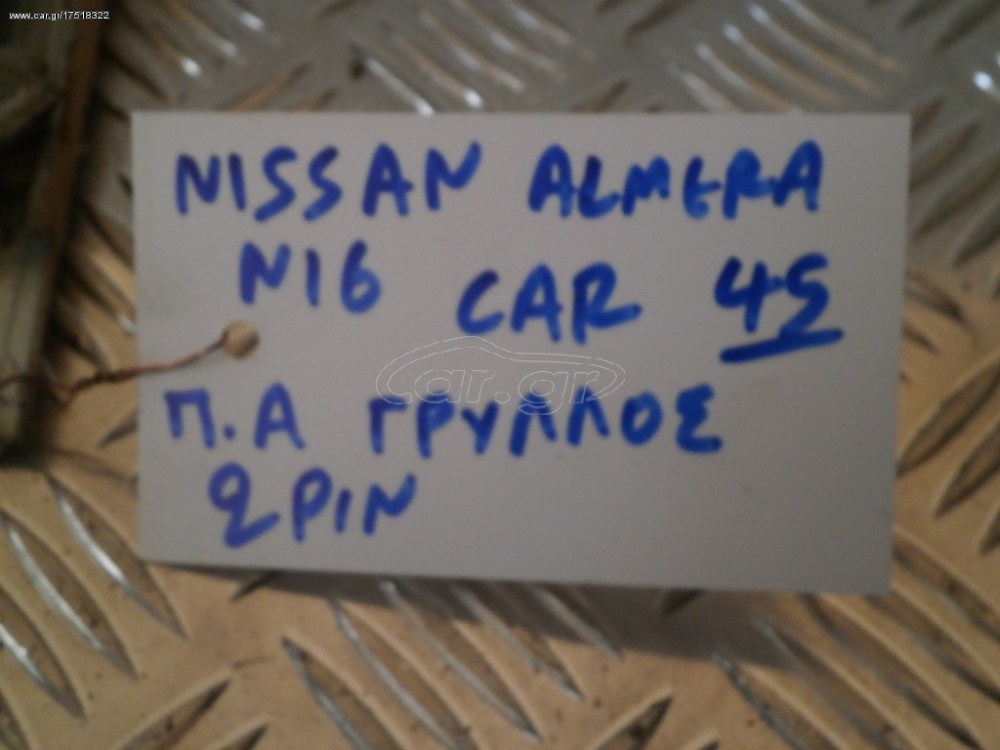 www.car.gr/17518322
NISSAN ALMERA
N16 CAR 45
Π.Α ΓΡΥΛΛΟΣ
2PIN
car.gr